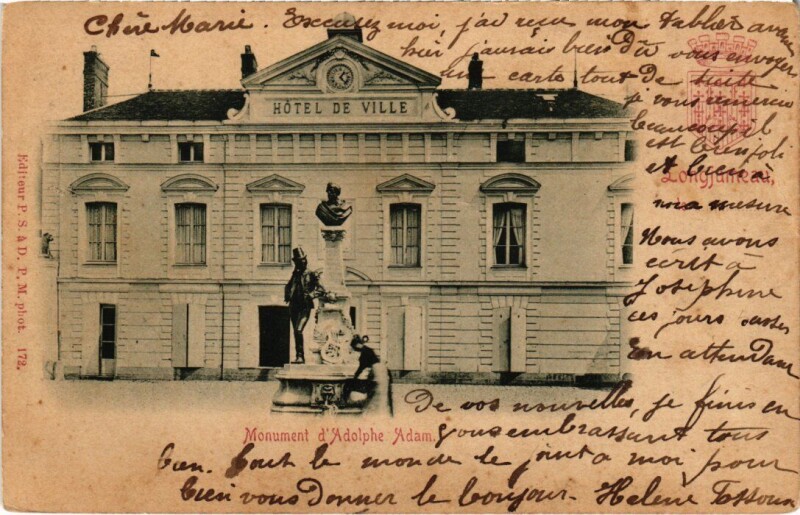 Chère Marie. Excusez moi, j'ai reçu mon tablier avant
hier j'aurais bien Dû vous envoyer
une carte tout De suite
je vous remercie
beaucoup il
est bien joli
et bien à
ma mesure
Longjumeau,
Nous avons
écrit à
Joséphine
ces jours
En attendant
De vos nouvelles, je finis en
vous embrassant tous
bien. tout le monde se joint à moi pour
bien vous Donner le bonjour - Helene
HÔTEL DE VILLE
Monument d'Adolphe Adam.
Editeur P. S. à D. P. M. phot. 172.